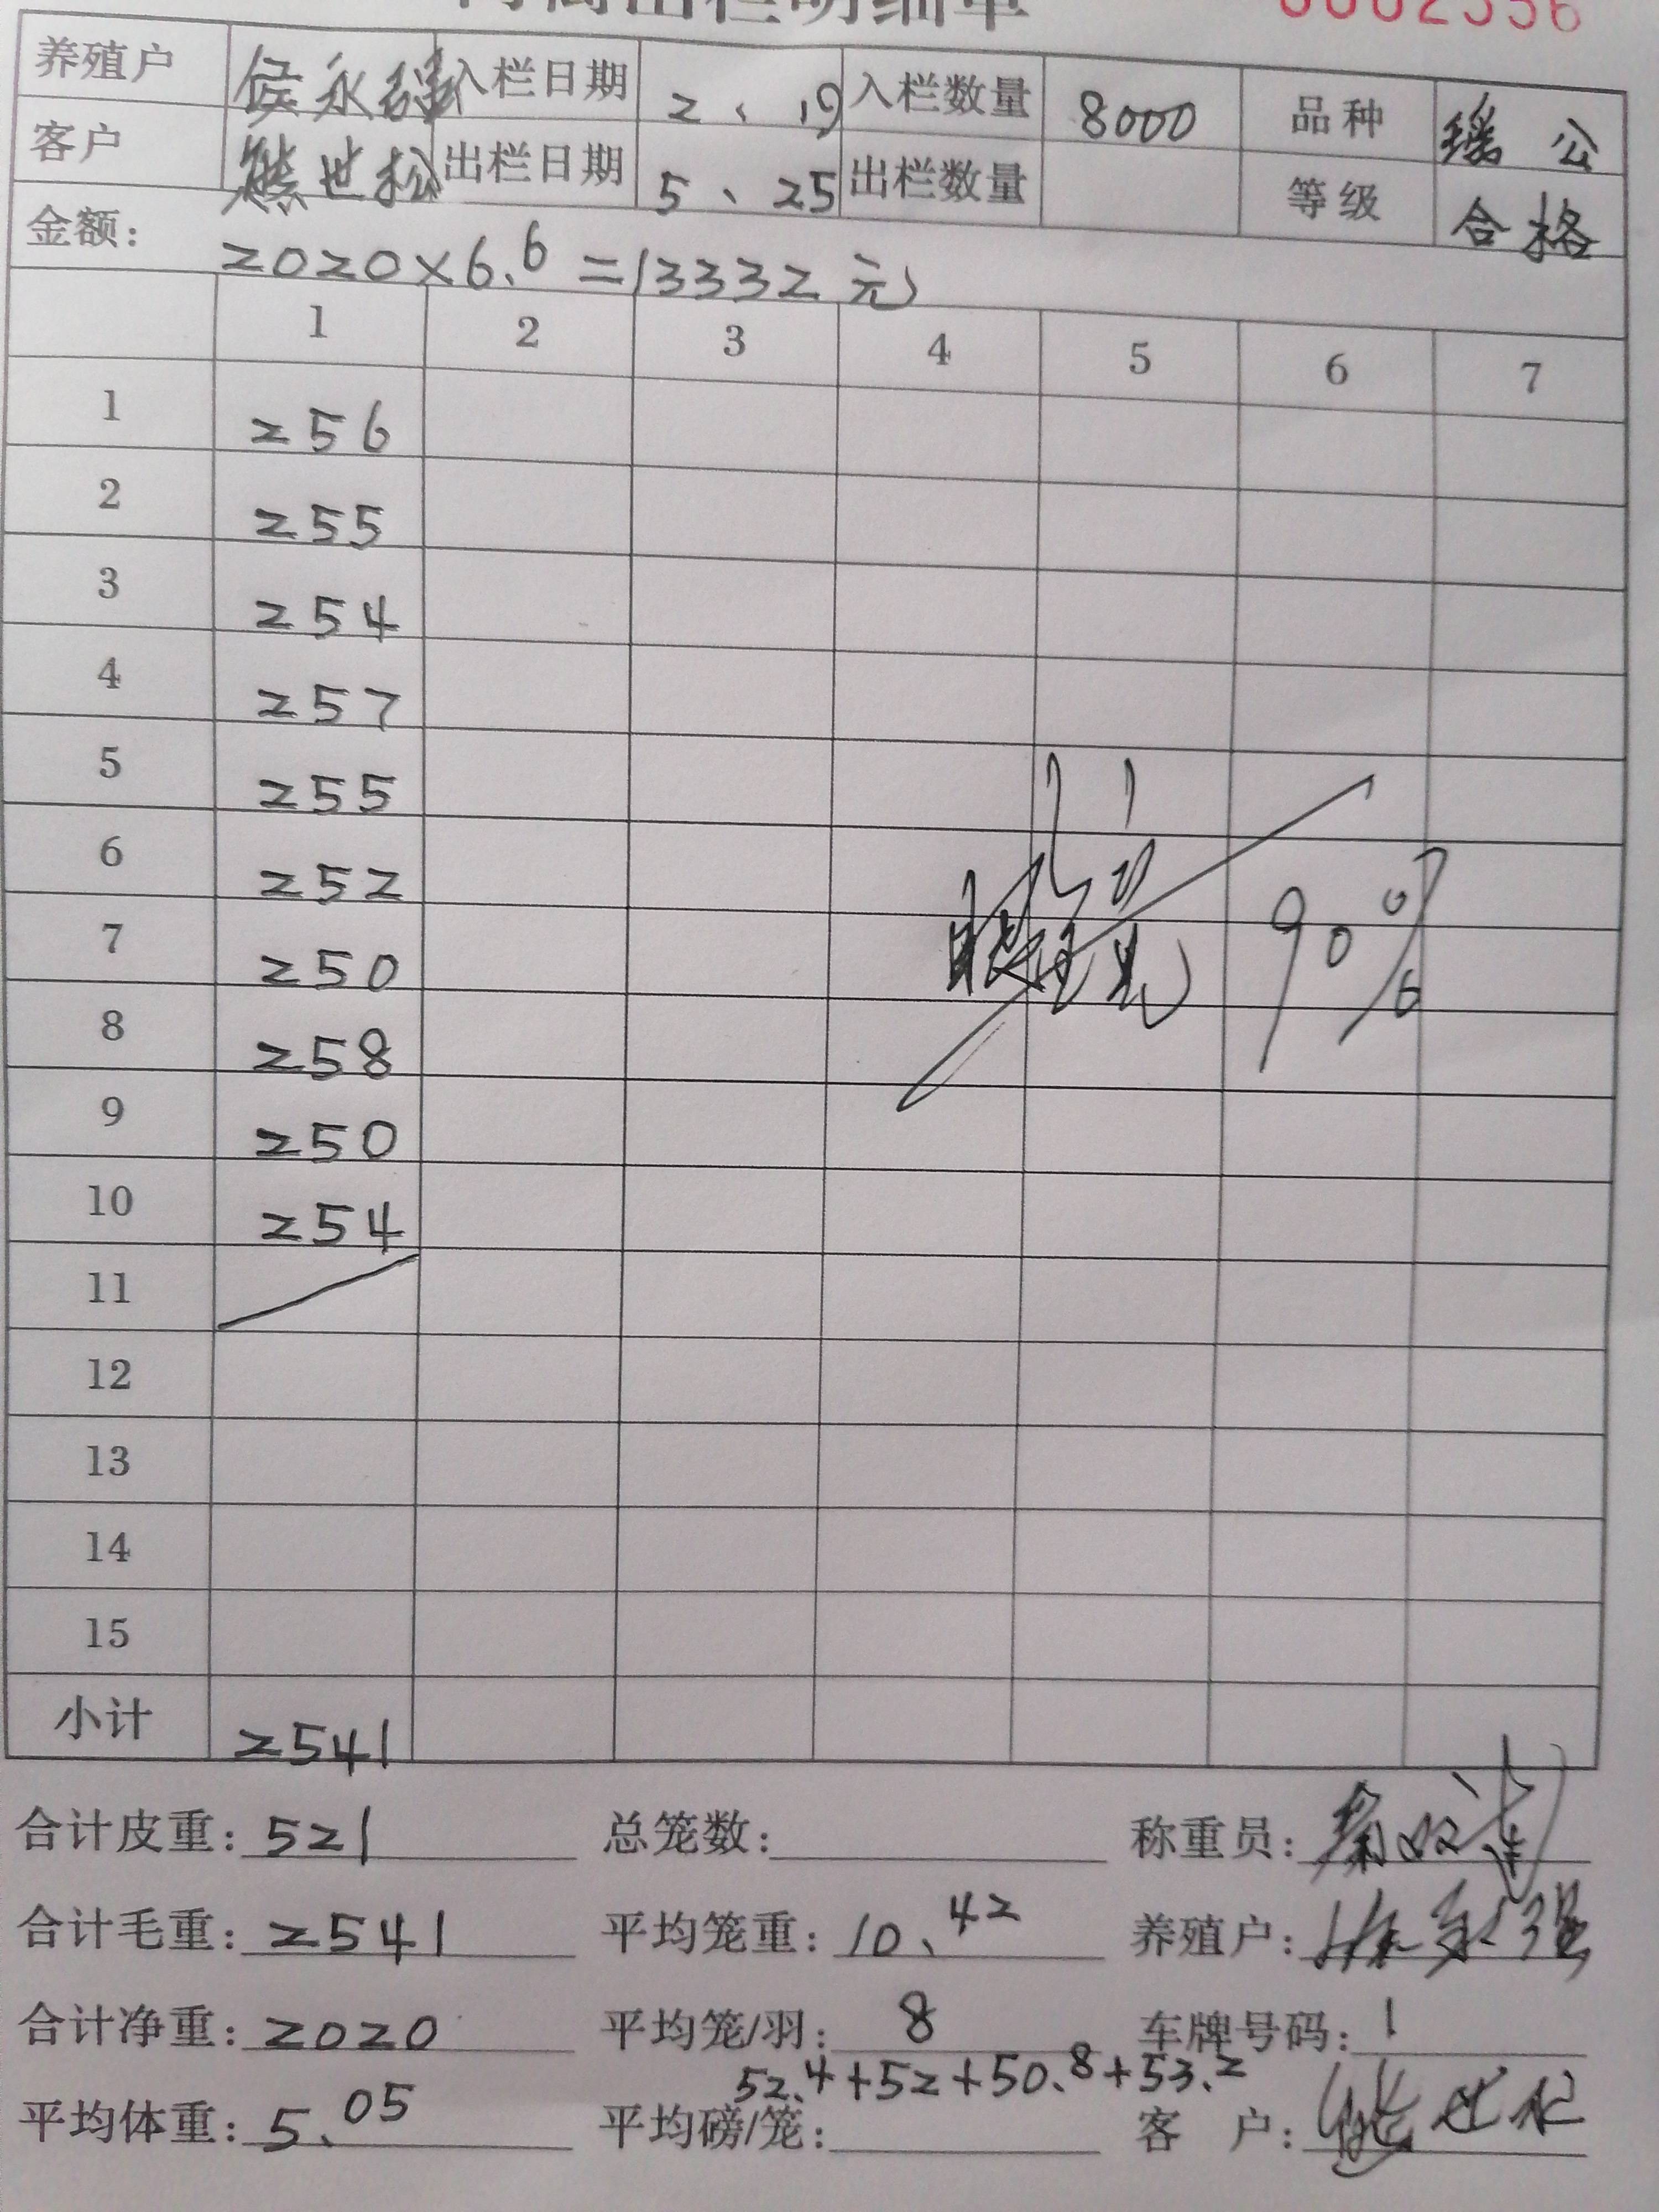 出栏明细单 0002556
养殖户 侯永强 入栏日期 2、19 入栏数量 8000 品种 瑶公
客户 熊世松 出栏日期 5、25 出栏数量 等级 合格
金额: 2020×6.6=13332元
1 2 3 4 5 6 7
1 256
2 255
3 254
4 257
5 255
6 252
7 250
8 258
9 250
10 254
11
12
13
14
15
90%
小计 2541
合计皮重: 521 总笼数: 称重员:
合计毛重: 2541 平均笼重: 10.42 养殖户: 侯永强
合计净重: 2020 平均笼/羽: 8 车牌号码: 1
52.4+52+50.8+53.2
平均体重: 5.05 平均磅/笼: 客 户: 熊世松